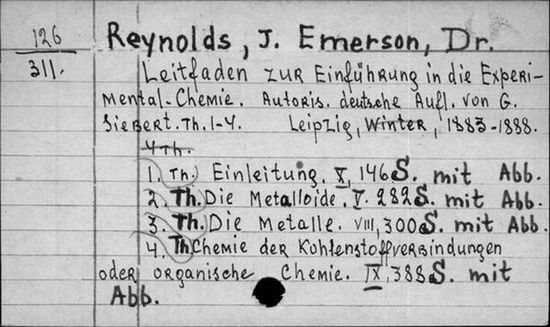 126
311.
Reynolds, J. Emerson, Dr.
Leitfaden zur Einführung in die Experi-
mental-Chemie. Autoris. deutsche Aufl. von G.
Siebert. Th. 1-4. Leipzig, Winter, 1883-1888.
4 Th.
1. Th. Einleitung. X, 146 S. mit Abb.
2. Th. Die Metalloide. V. 282 S. mit Abb.
3. Th. Die Metalle. VIII, 300 S. mit Abb.
4. Th Chemie der Kohlenstoffverbindungen
oder organische Chemie. IX, 388 S. mit
Abb.